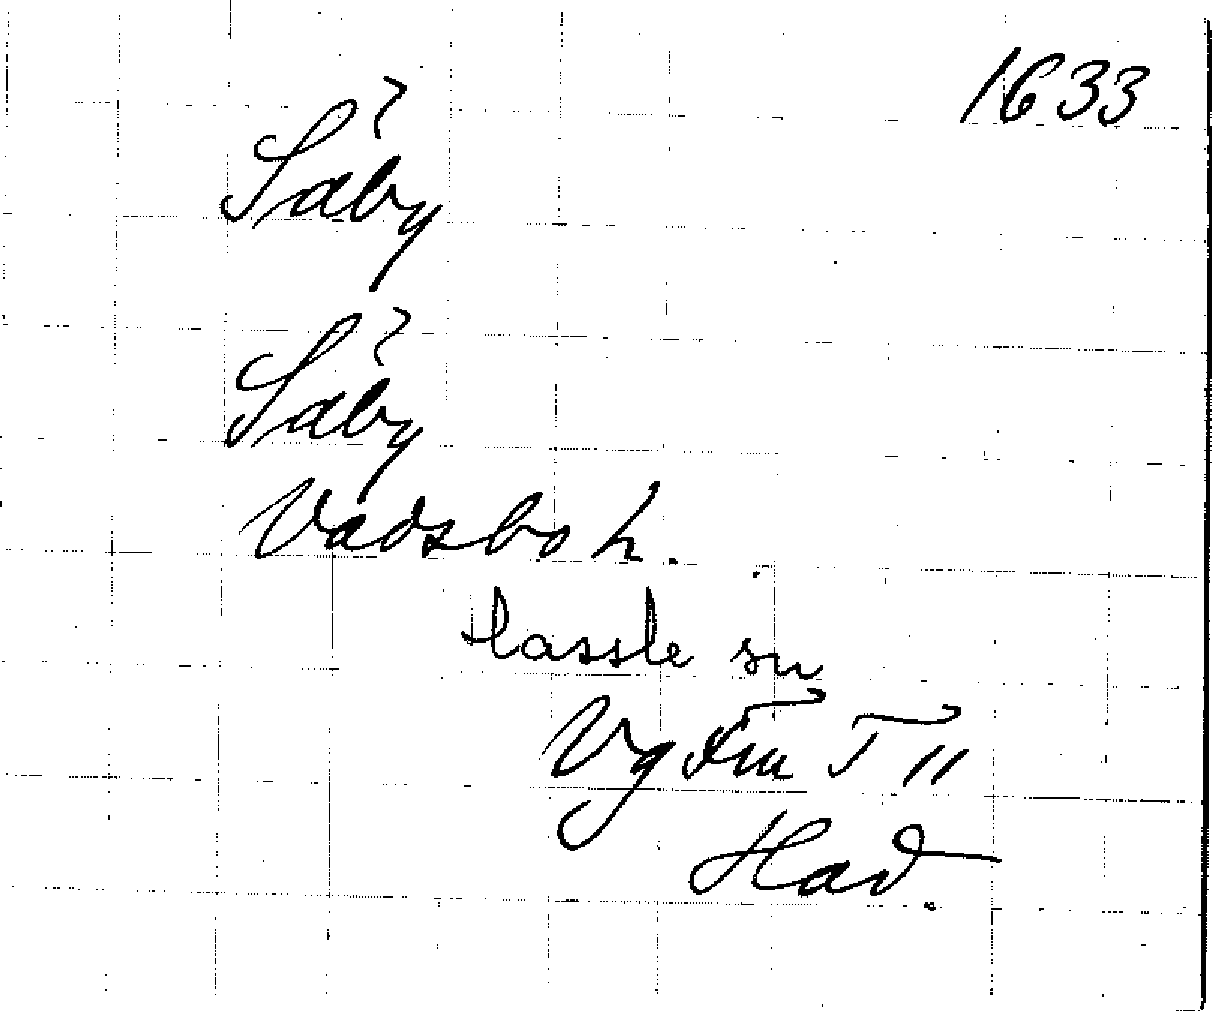 1633
Säby
Säby
Vadsbo h.
Hassle sn
Vg Fm T 11
Had